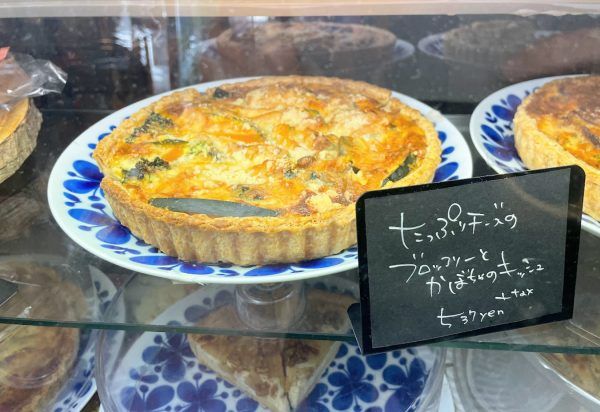 たっぷりチーズの
ブロッコリーと
かぼちゃのキッシュ
+tax
537yen